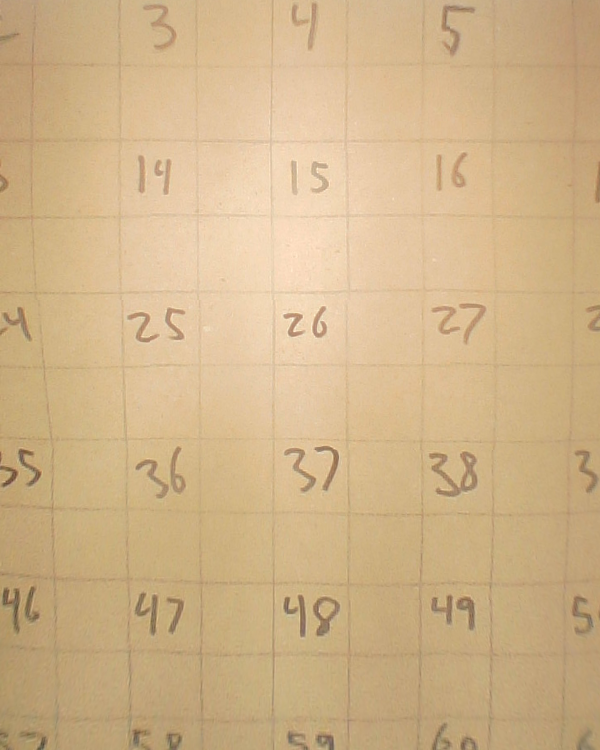 3 4 5
14 15 16
25 26 27
35 36 37 38
46 47 48 49
58 59 60